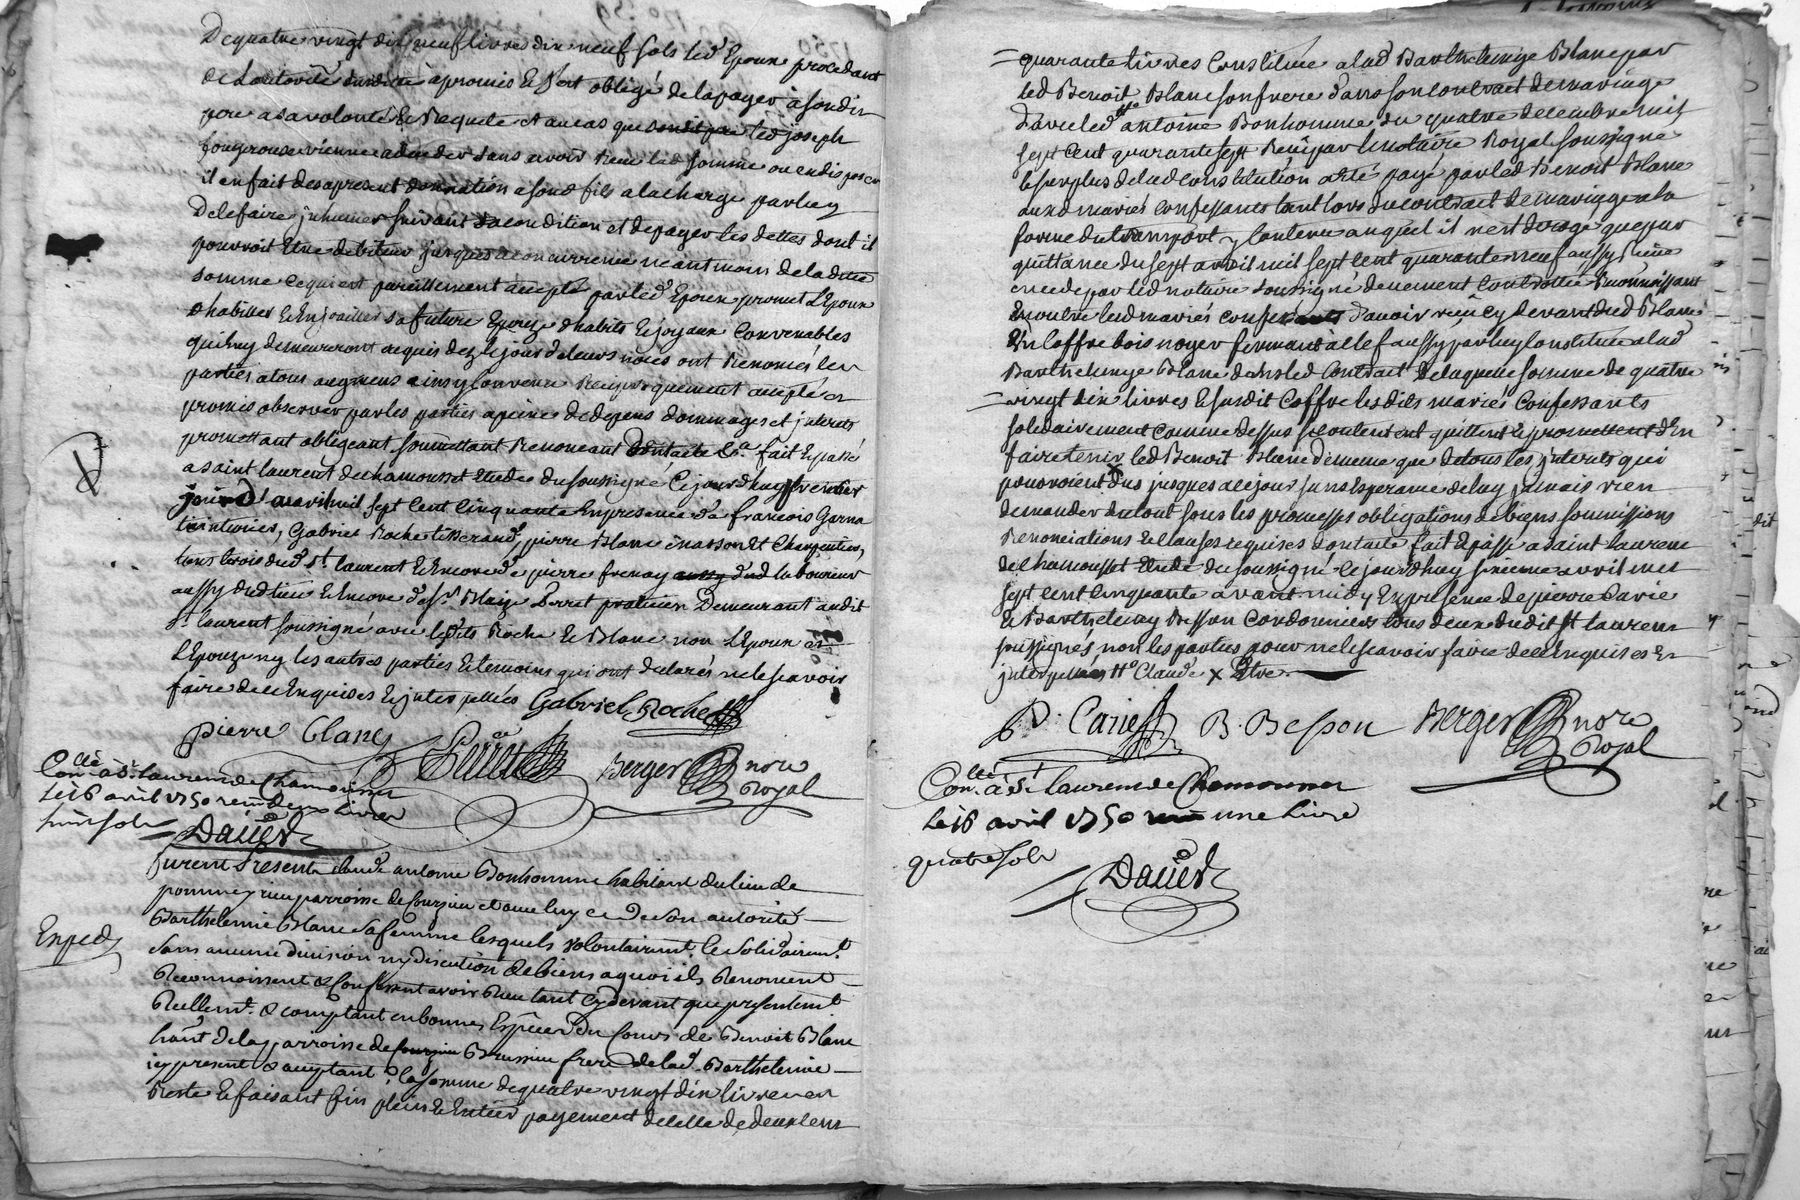 De quatre vingt dix neuf livres dix neuf sols led Epoux procedant
de Lautorité susdite a promis et s'est obligé de la payer a sondit
pere a sa volonté et Requete et au cas que led joseph
fougerouse vienne a deceder sans avoir Receu lad somme ou en disposer
il en fait des apresent donnation a sond fils a la charge par luy
De le faire jnhumer suivant sa condition et de payer les dettes dont il
pouvroit Etre debiteur jusques a concurrence neantmoins de la ditte
somme ce qui est pareillement accepté par led Epoux promet L'Epoux
d'habiller et Enjoailler sa future Epouze d'habits et joyaux convenables
qui luy demeureront acquis dez le jour de leurs noces ont Renoncé les
parties a tous augmens ainsy convenu Reciproquement accepté et
promis observer par les parties a peine de depens dommages et jnterets
promettant obligeant soumettant Renonceant Dont acte &a fait et passé
a saint laurent de chamousset Etude du soussigné Cejourdhuy premier
jour d'avril mil sept cent cinquante En presence de françois Garna
teinturier, Gabriel Roche tisserand, pierre Blanc masson et Charpentier,
tous trois dud st laurent et Encore de pierre frenay dud laboureur
aussy dud lieu et Encore de sr Blaize Perret praticien Demeurant audit
st laurent soussigné avec lesdits Roche et Blanc non L'Epoux et
L'Epouze ny les autres parties et temoins qui ont declarés ne le scavoir
faire de ce Enquises et jnterpellées Gabriel Roche
pierre blanc Perret Berger nore
Royal
Conllé à St laurent de Chamousset
Le 16 avril 1750 livres
huit sols
Dauer
furent Presents claude antoine Bonhomme habitant du lieu de
pommeyrieu parroisse de Courzieu et avec luy et de son autorité
Barthelemie Blanc sa femme lesquels volontairemt. et solidairemt.
Expedé
sans aucune division ny discution de biens a quoi ils Renoncent
Reconnoissent & Confessent avoir Reeu tant cy devant que presentemt.
Réellemt. & comptant en bonnes Espèces du Cours de Benoit Blanc
habt. de la parroisse de Brussieu frere de lad. Barthelemie
icy present & acceptant la somme de quatre vingt dix livres en
Reste et faisant fin plein et Entier payement de celle de deux cent
quarante livres Constituée a lad Barthelemye Blanc par
led Benoit Blanc son frere dans son contract de mariage
d'avec led antoine Bonhomme du quatre decembre mil
sept cent quarante sept Receu par le notaire Royal soussigné
le surplus de lad constitution a été payé par led Benoit Blanc
auxd mariés confessants tant lors du contract de mariage a la
forme du transport y contenu auquel il n'est derogé que par
quittance du sept avril mil sept cent quarante neuf aussy Reçue
par led notaire soussigné deuement Controllée Reconnoissant
En outre lesd mariés confessants d'avoir reçu cy devant dud Blanc
Un Coffre bois noyer fermant a clef aussy par luy constitué a lad
Barthelemye Blanc dans led Contract De laquelle somme de quatre
vingt dix livres et susdit Coffre lesdits mariés Confessants
solidairement comme dessus se contentent quittent et promettent d'En
faire tenir led Benoit Blanc de meme que de tous les jnterets qui
pouvoient dus jusques a ce jour sans Esperance de luy jamais rien
demander du tout sous les promesses obligations de biens soumissions
Renonciations et clauses requises dont acte fait et passé a saint laurent
de chamousset Etude du soussigné cejourdhuy avril mil
sept cent cinquante avant midy En presence de pierre Carie
et Barthelemy Besson Cordonniers tous deux dudit st laurent
soussignés non les parties pour ne le scavoir faire de ce Enquises et
jnterpellées
P: Carie B. Besson Berger nore
Royal
Conllé à St laurent de Chamousset
Le 16 avril 1750 une livre
quatre sols
Dauer